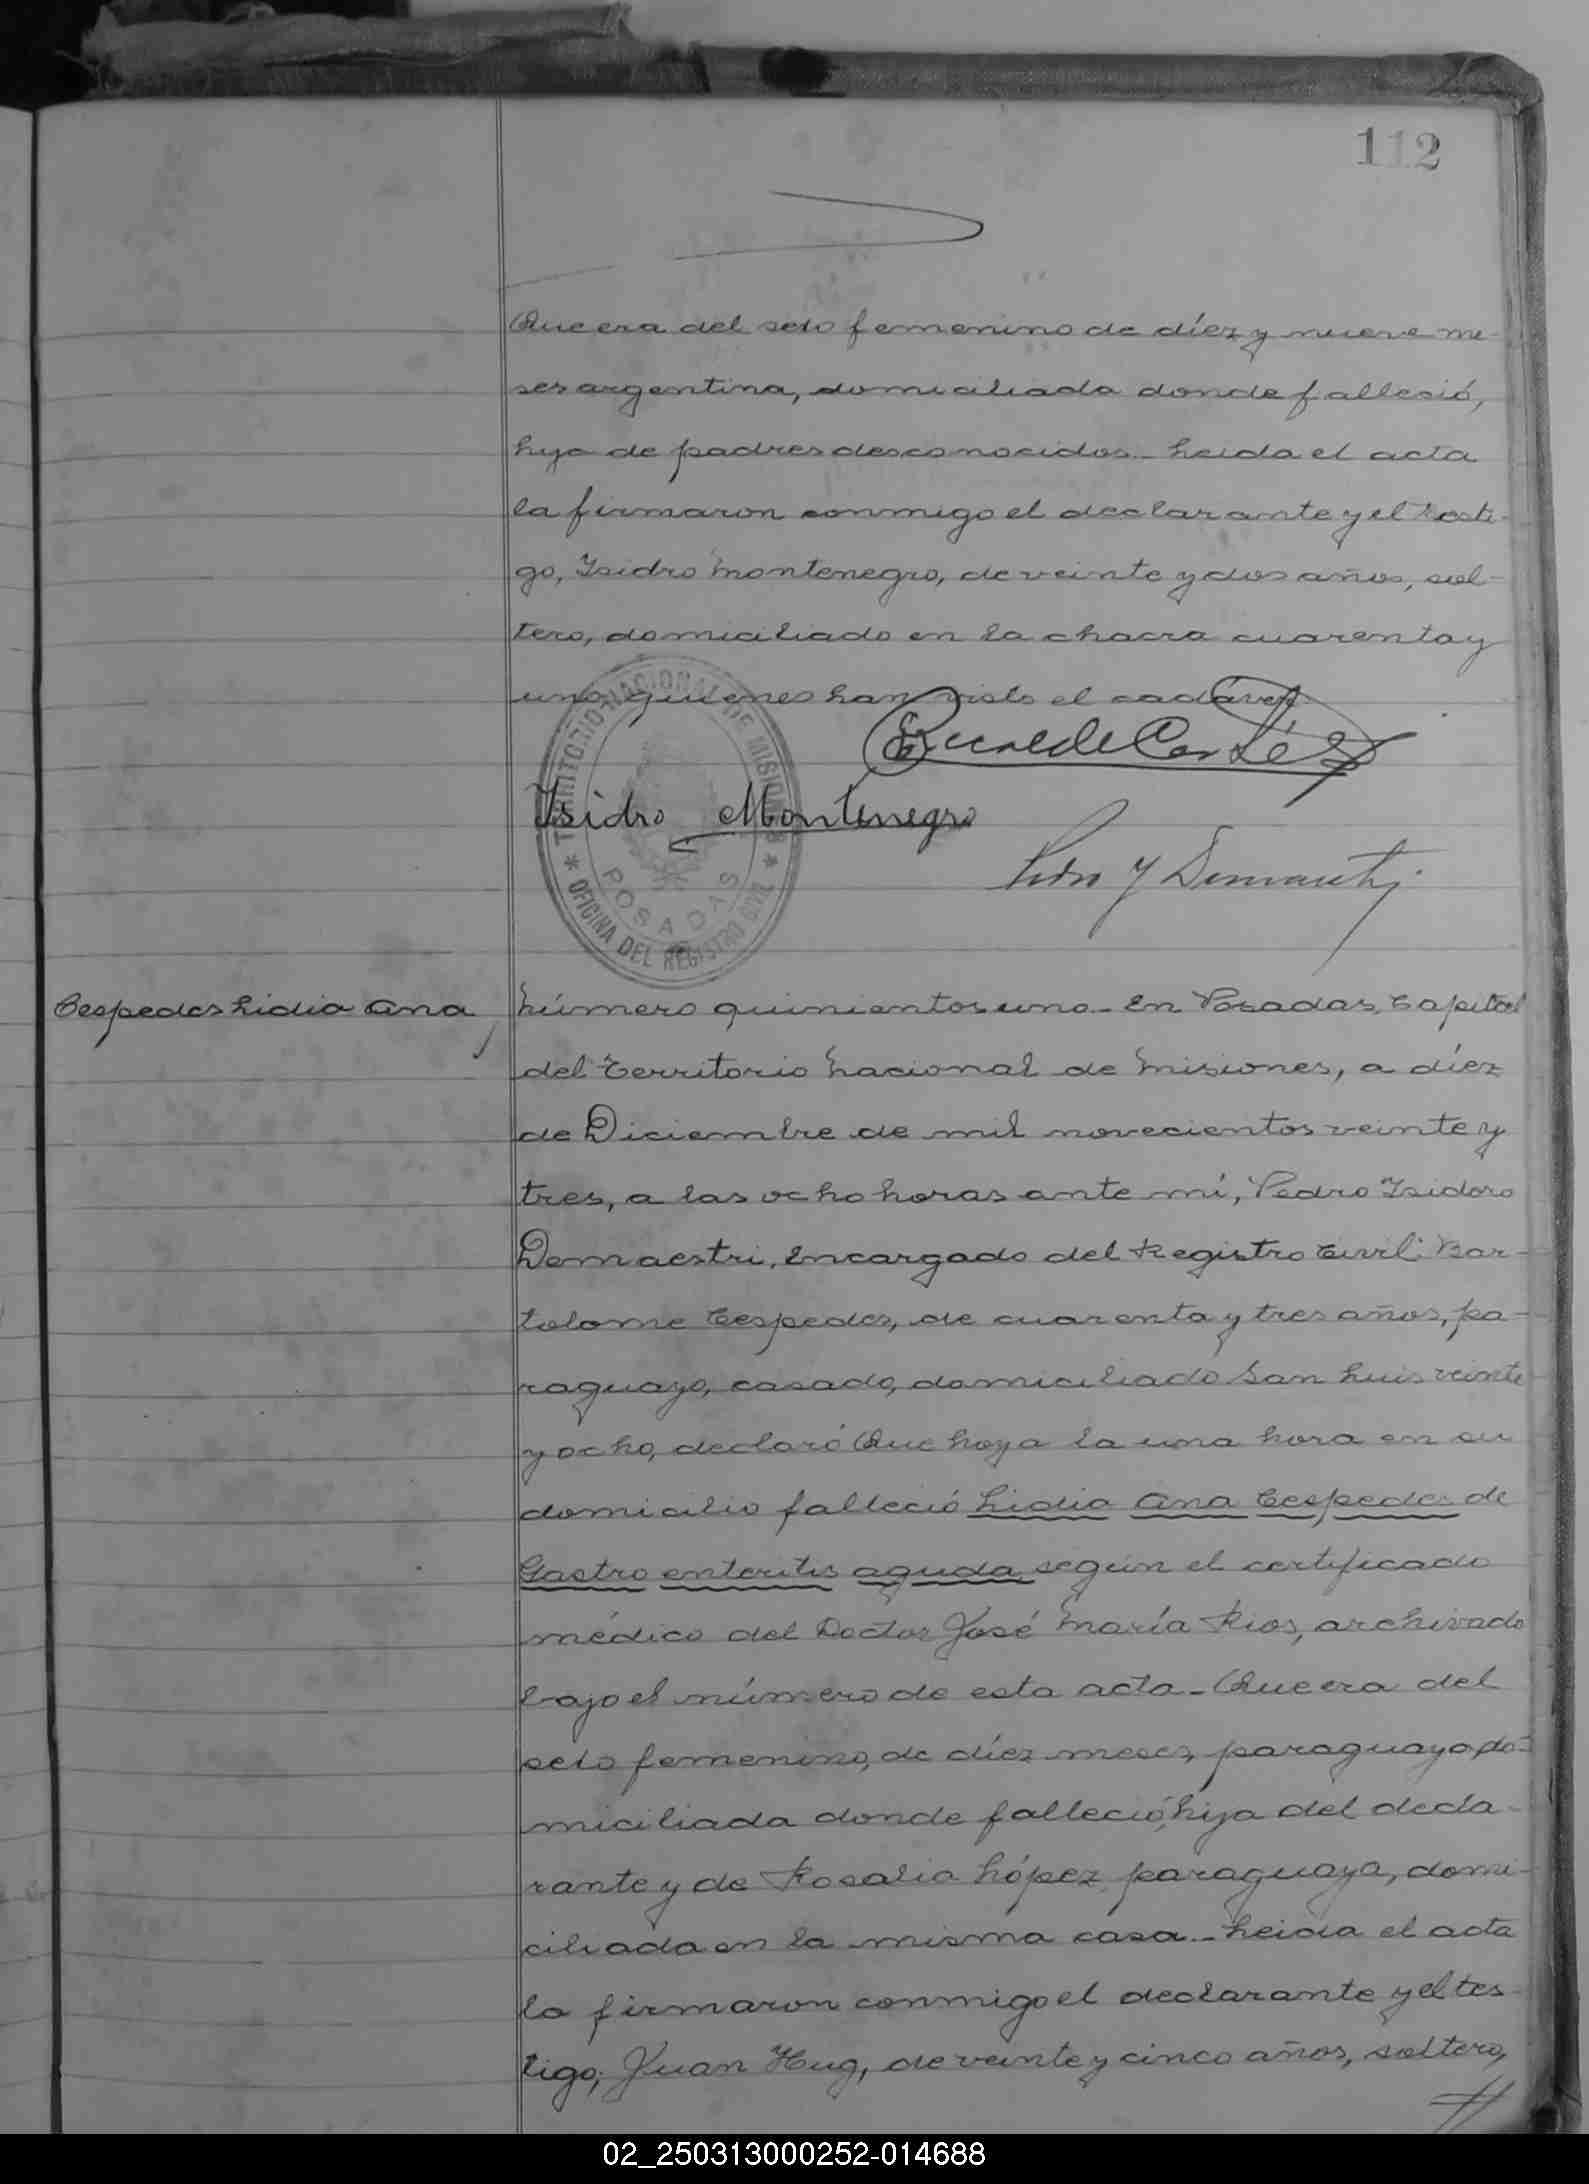 112
Que era del sexo femenino de díez y nueve me-
ses argentina, domiciliada donde fallesió,
hija de padres desconocidos.- Leida el acta
la firmaron conmigo el declarante y el testi-
go, Isidro Montenegro, de veinte y dos años, sol-
tero, domiciliado en la chacra cuarenta y
uno, quienes han visto el cadáver.
Isidro Montenegro
TERRITORIO NACIONAL DE MISIONES
POSADAS
* OFICINA DEL REGISTRO CIVIL *
Cespedes Lidia Ana,
Número quinientos uno.- En Posadas, Capital
del Territorio Nacional de Misiones, a díez
de Diciembre de mil novecientos veinte y
tres, a las ocho horas ante mí, Pedro Isidoro
Demaestri, Encargado del Registro Civil: Bar-
tolome Cespedes, de cuarenta y tres años, pa-
raguayo, casado, domiciliado San Luis veinte
y ocho, declaró Que hoy a la una hora en su
domicilio falleció Lidia Ana Cespedes de
Gastro enteritis aguda según el certificado
médico del Doctor José María Rios, archivado
bajo el número de esta acta.- Que era del
sexo femenino, de díez meses, paraguaya do-
miciliada donde falleció, hija del decla-
rante y de Rosalia López, paraguaya, domi-
ciliada en la misma casa.- Leida el acta
la firmaron conmigo el declarante y el tes-
tigo, Juan Hug, de veinte y cinco años, soltero,
//
02_250313000252-014688